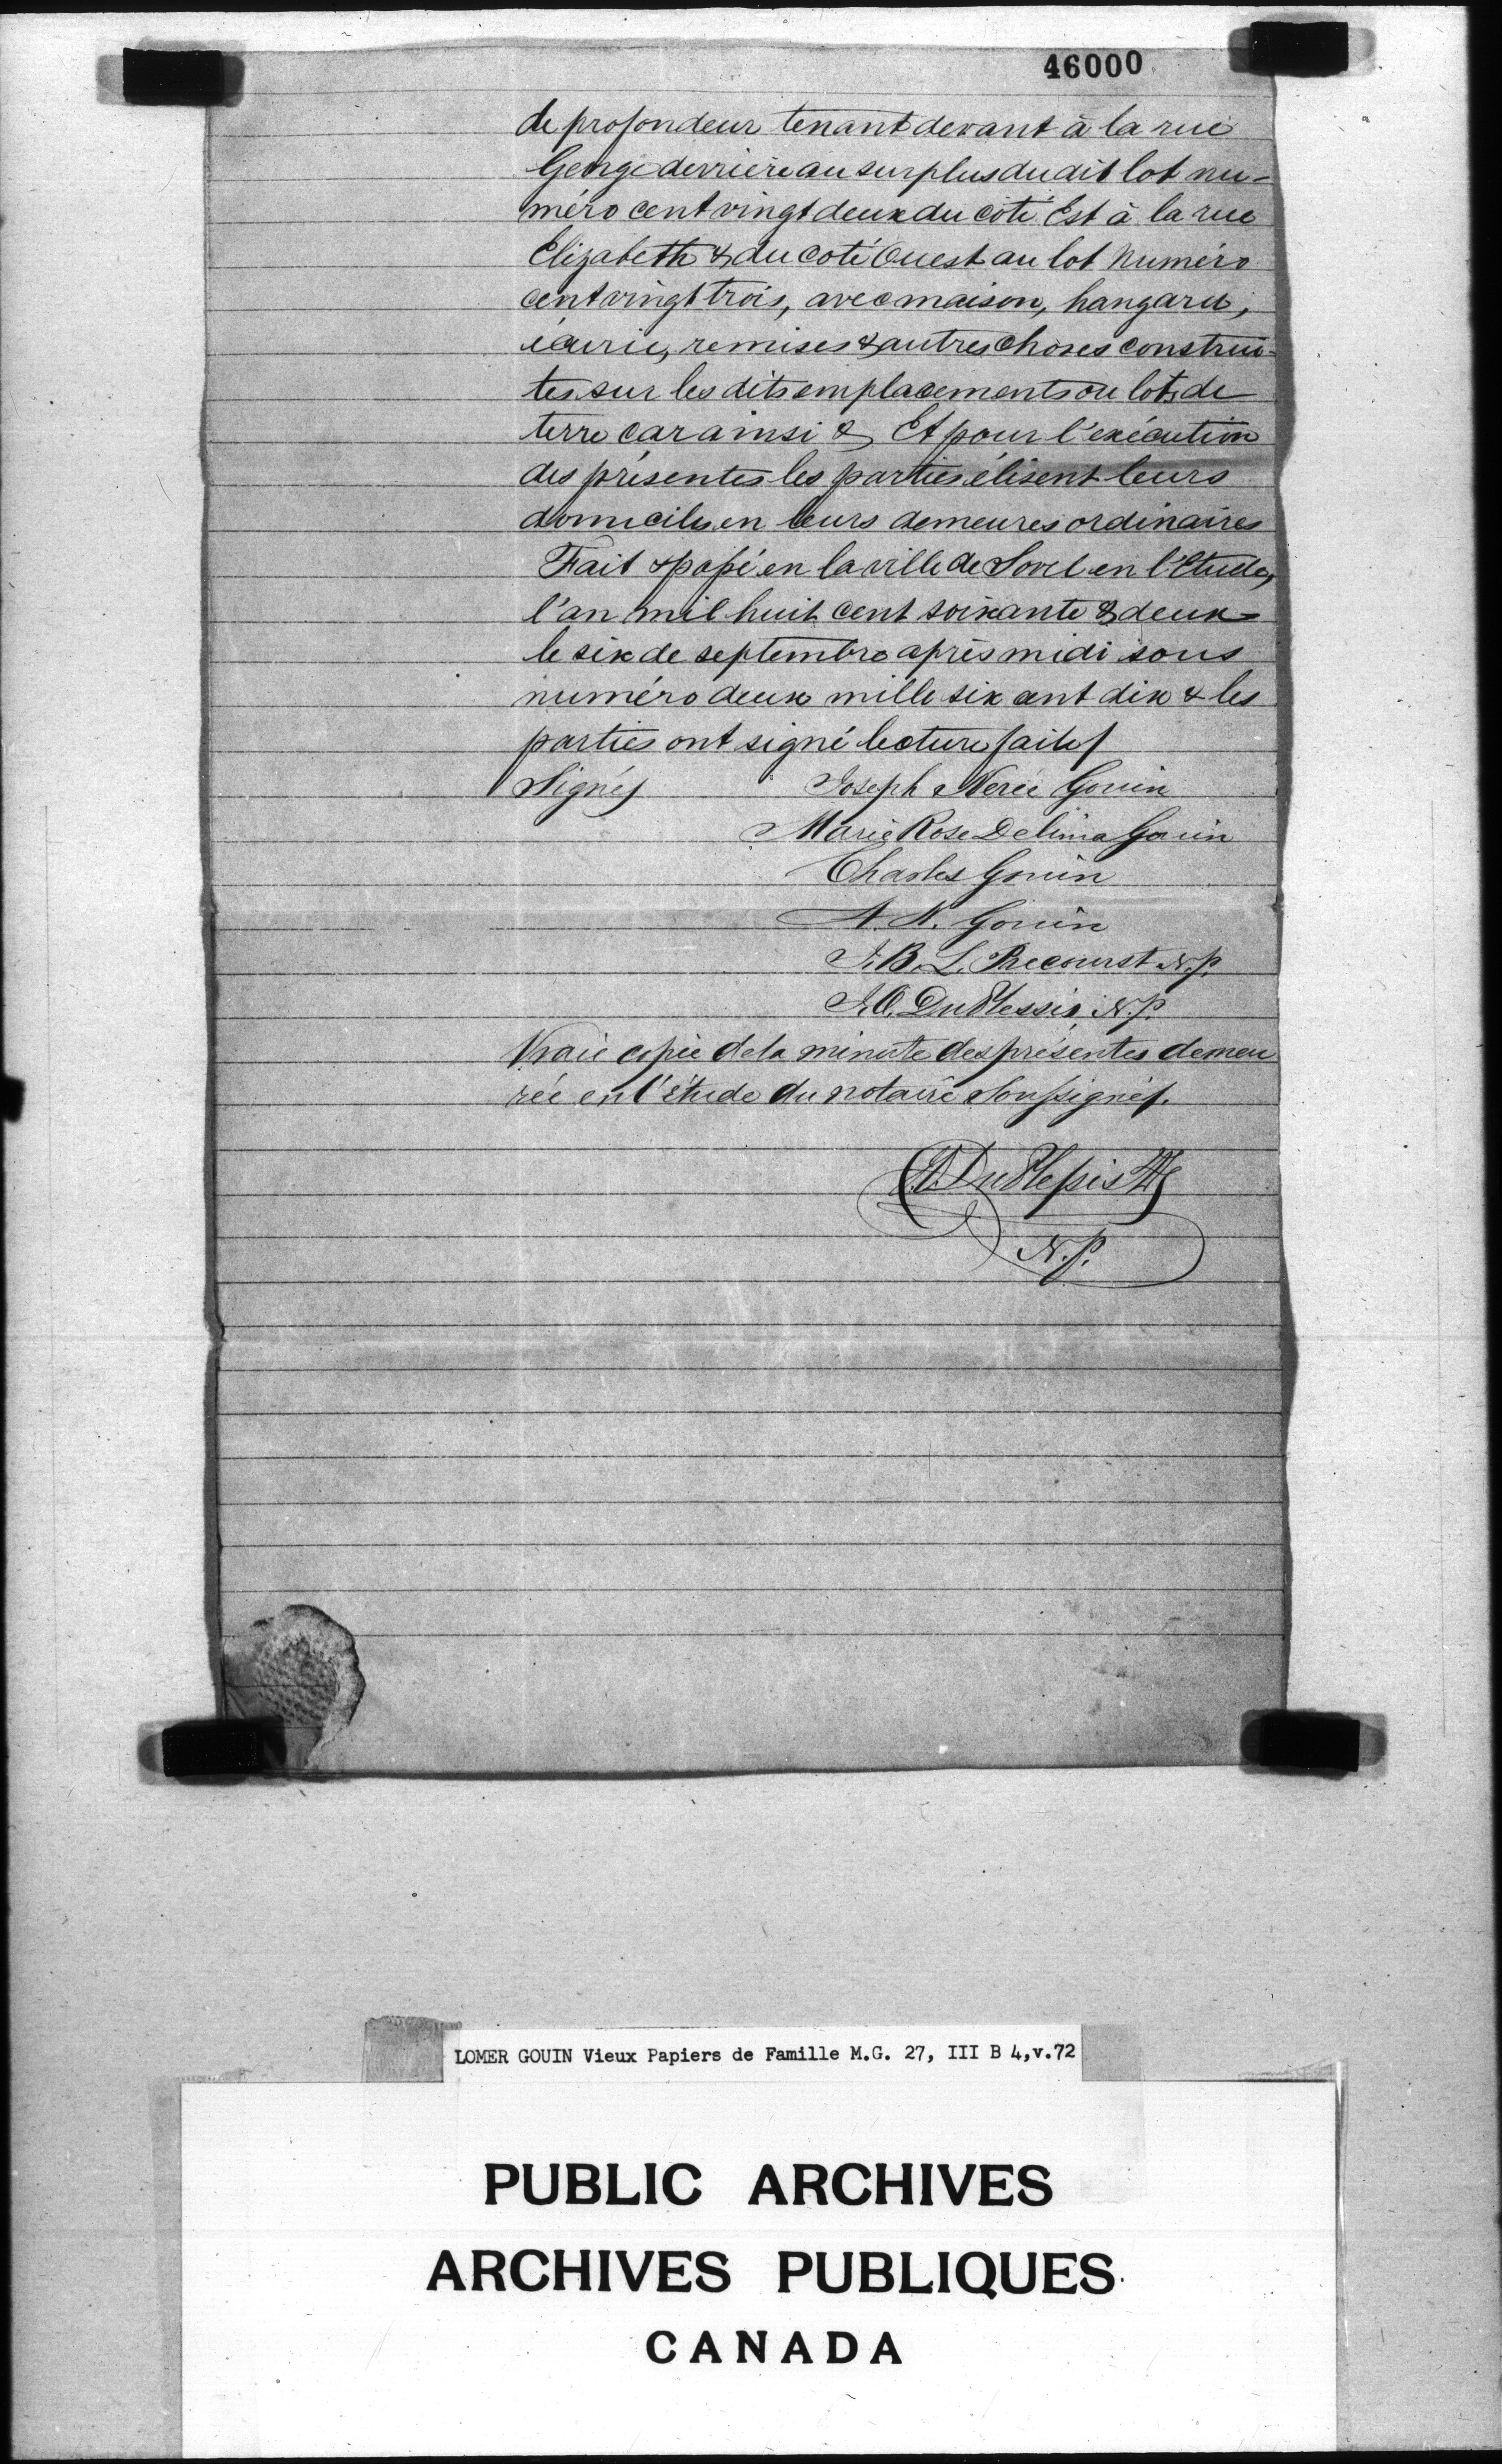 46000
de profondeur tenant devant à la rue
George derrière au surplus du dit lot nu-
méro cent vingt deux du coté Est à la rue
Elizabeth & du coté Ouest au lot numéro
cent vingt trois, avec maison, hangard,
écurie, remises & autres choses construi-
tes sur les dits emplacements ou lots de
terre car ainsi & Et pour l'exécution
des présentes les parties élisent leurs
domiciles en leurs demeures ordinaires
Fait & passé en la ville de Sorel en l'Etude,
l'an mil huit cent soixante & deux
le six de septembre après midi sous
numéro deux mille six cent dix & les
parties ont signé lecture faite/
Signés Joseph Nerée Gouin
Marie Rose Delima Gouin
Charles Gouin
A. N. Gouin
J. B. L. Precourst N.P.
J. O. DuPlessis N.P.
Vraie copie de la minute des présentes demeu
rée en l'étude du notaire soussigné/.
DuPlessis
N.P.
LOMER GOUIN Vieux Papiers de Famille M.G. 27, III B 4,v.72
PUBLIC ARCHIVES
ARCHIVES PUBLIQUES
CANADA